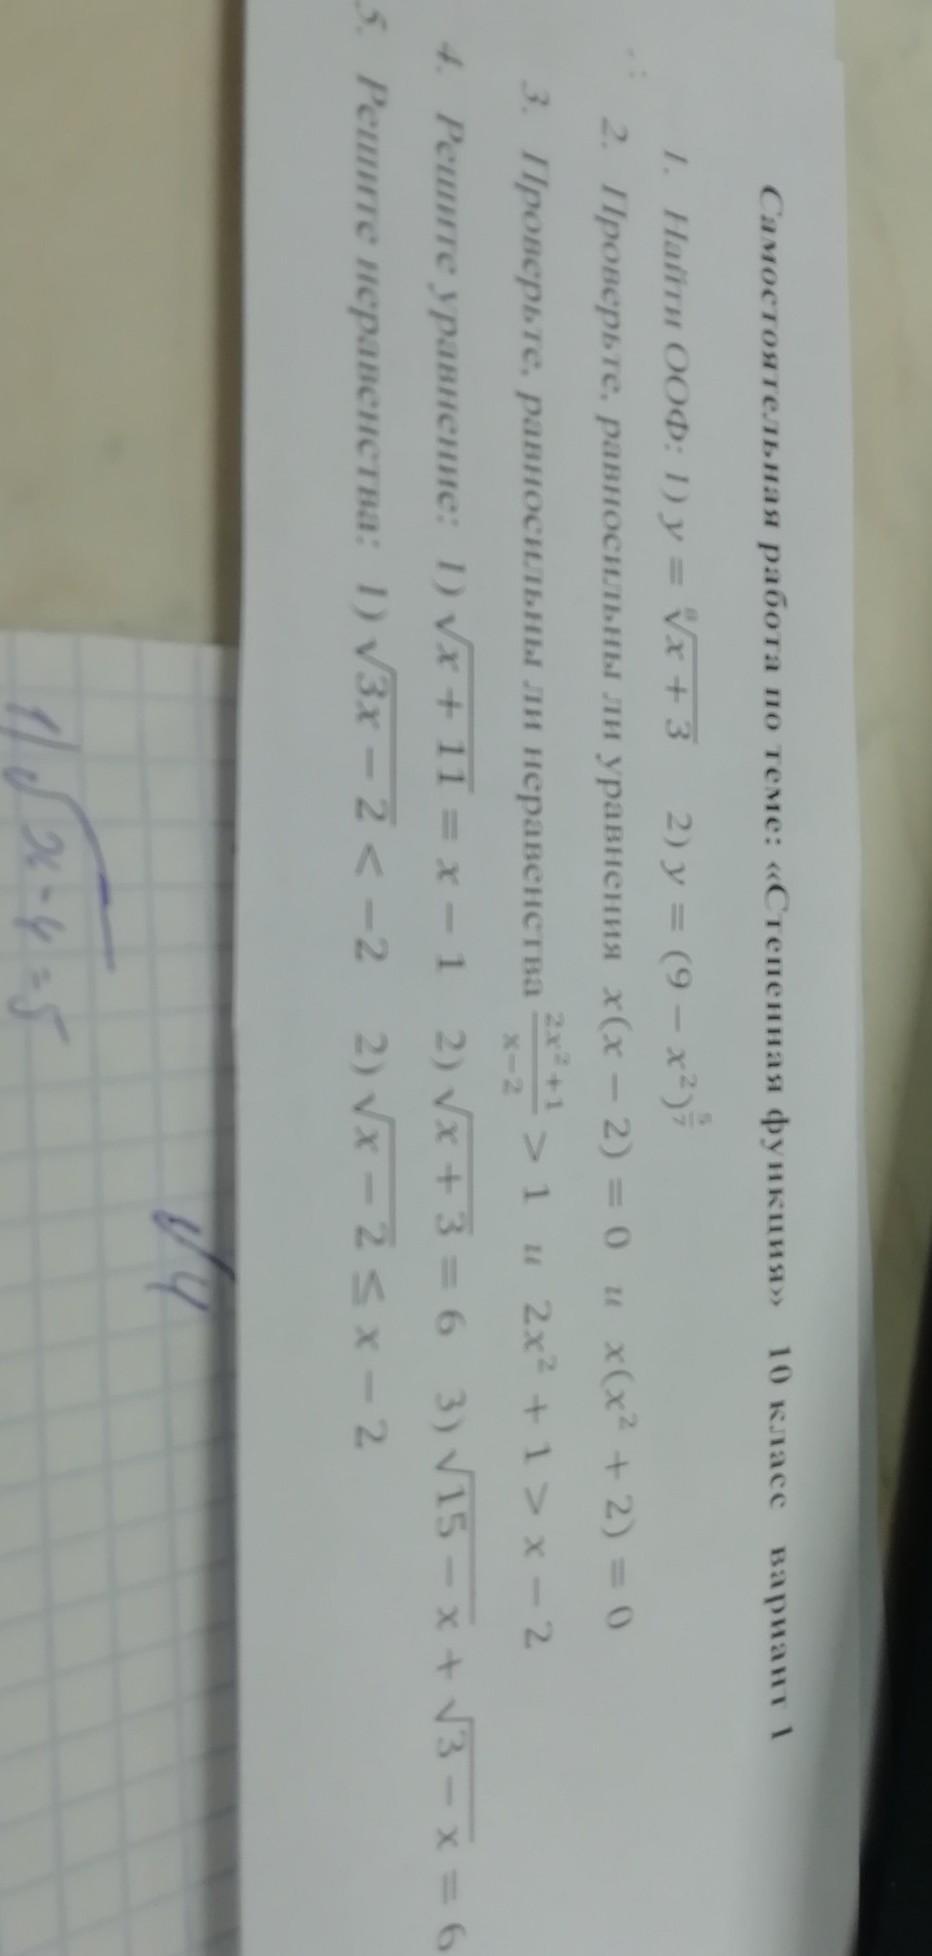 Самостоятельная работа по теме: «Степенная функция» 10 класс вариант 1
1. Найти ООФ: 1) y = ⁸√(x + 3) 2) y = (9 − x²)^(5/7)
2. Проверьте, равносильны ли уравнения x(x − 2) = 0 и x(x² + 2) = 0
3. Проверьте, равносильны ли неравенства (2x²+1)/(x−2) > 1 и 2x² + 1 > x − 2
4. Решите уравнение: 1) √(x + 11) = x − 1 2) √(x + 3) = 6 3) √(15 − x) + √(3 − x) = 6
5. Решите неравенства: 1) √(3x − 2) < −2 2) √(x − 2) ≤ x − 2
√4
1) √(x-4) = 5